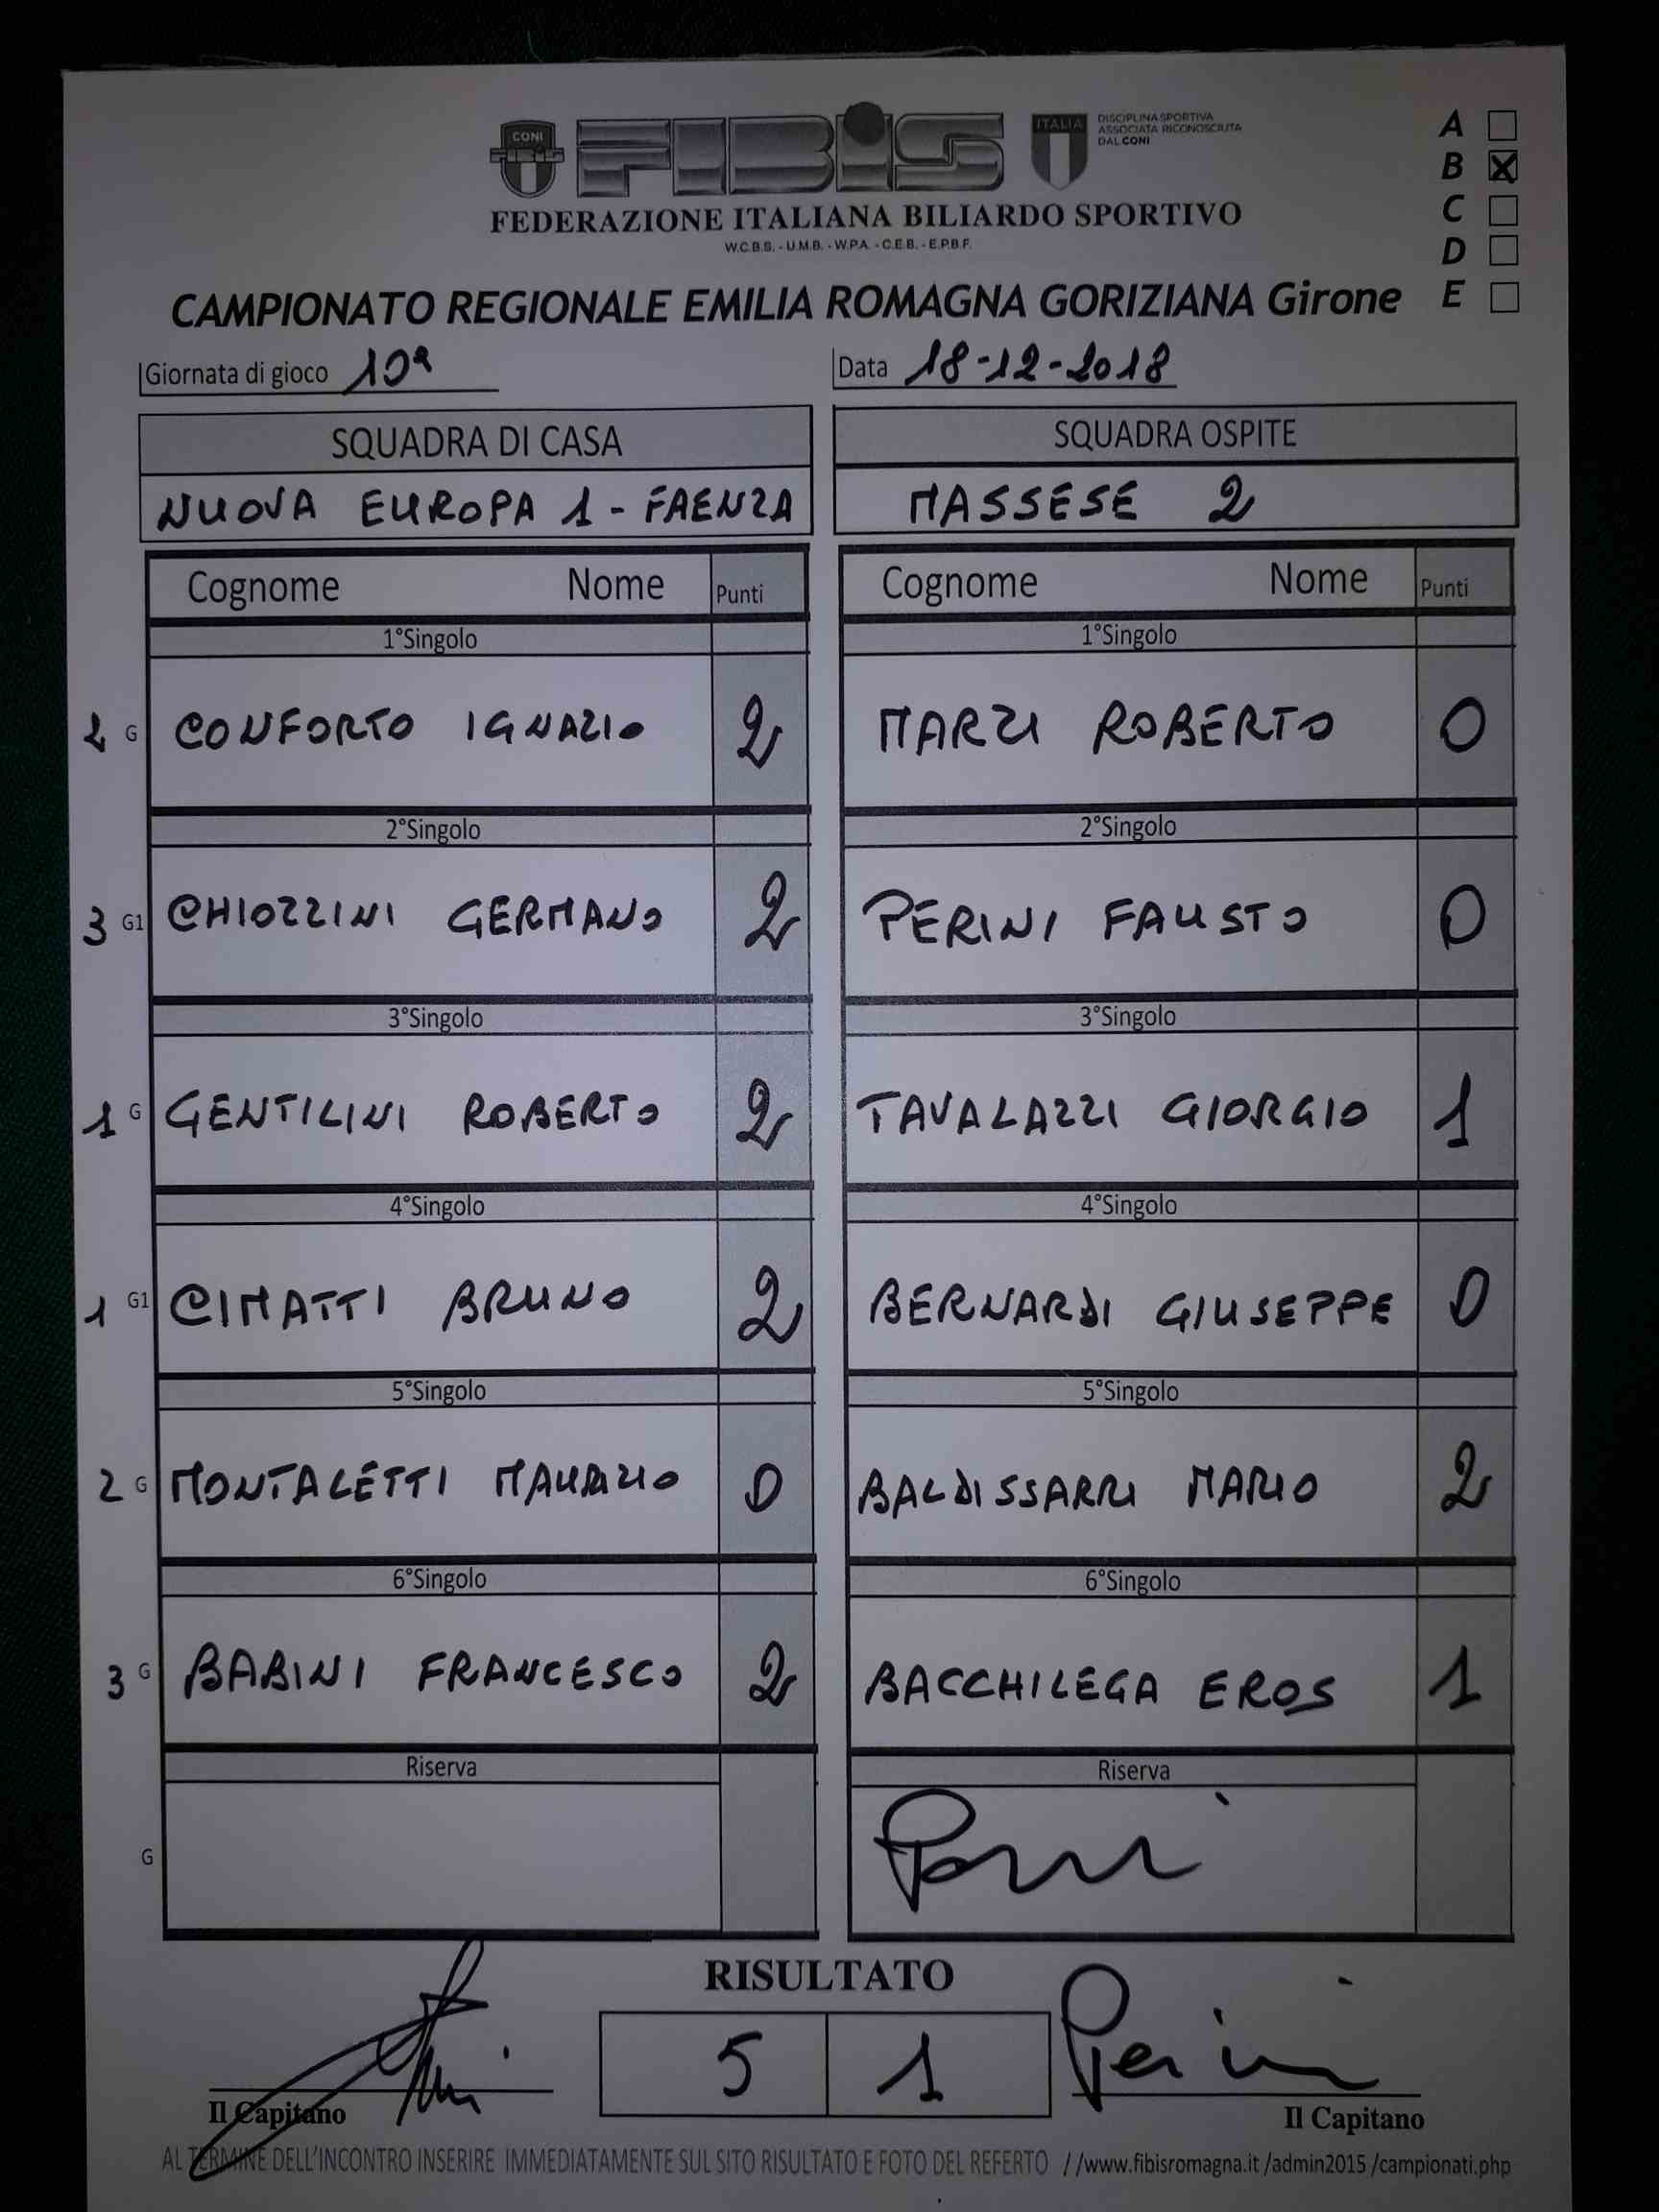 CONI
FIBIS
ITALIA
DISCIPLINA SPORTIVA
ASSOCIATA RICONOSCIUTA
DAL CONI
A
B X
C
D
E
FEDERAZIONE ITALIANA BILIARDO SPORTIVO
W.C.B.S. - U.M.B. - W.P.A. - C.E.B. - E.P.B.F.
CAMPIONATO REGIONALE EMILIA ROMAGNA GORIZIANA Girone
Giornata di gioco 10ª Data 18-12-2018
SQUADRA DI CASA SQUADRA OSPITE
NUOVA EUROPA 1 - FAENZA MASSESE 2
Cognome Nome Punti Cognome Nome Punti
1°Singolo 1°Singolo
2 G CONFORTO IGNAZIO 2 MARZI ROBERTO 0
2°Singolo 2°Singolo
3 G1 CHIOZZINI GERMANO 2 PERINI FAUSTO 0
3°Singolo 3°Singolo
1 G GENTILINI ROBERTO 2 TAVALAZZI GIORGIO 1
4°Singolo 4°Singolo
1 G1 CIMATTI BRUNO 2 BERNARDI GIUSEPPE 0
5°Singolo 5°Singolo
2 G MONTALETTI MAURIZIO 0 BALDISSARRI MARIO 2
6°Singolo 6°Singolo
3 G BABINI FRANCESCO 2 BACCHILEGA EROS 1
Riserva Riserva
G
RISULTATO
5 1 Perini
Il Capitano Il Capitano
AL TERMINE DELL'INCONTRO INSERIRE IMMEDIATAMENTE SUL SITO RISULTATO E FOTO DEL REFERTO //www.fibisromagna.it/admin2015/campionati.php